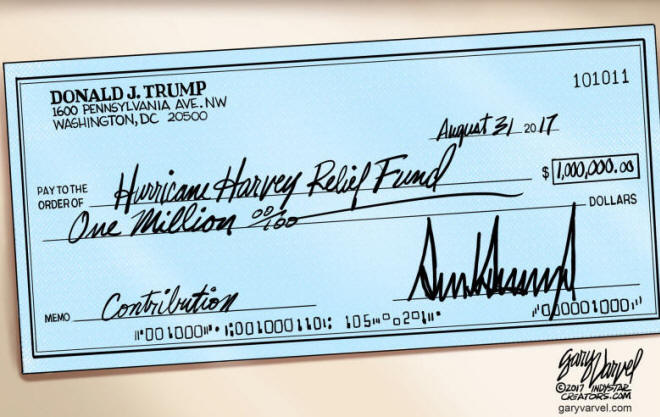 DONALD J. TRUMP
1600 PENNSYLVANIA AVE. NW
WASHINGTON, DC 20500
101011
August 31 2017
PAY TO THE ORDER OF Hurricane Harvey Relief Fund $ 1,000,000.00
One Million 00/100 DOLLARS
MEMO Contribution
Gary Varvel
©2017 INDYSTAR
CREATORS.COM
garyvarvel.com